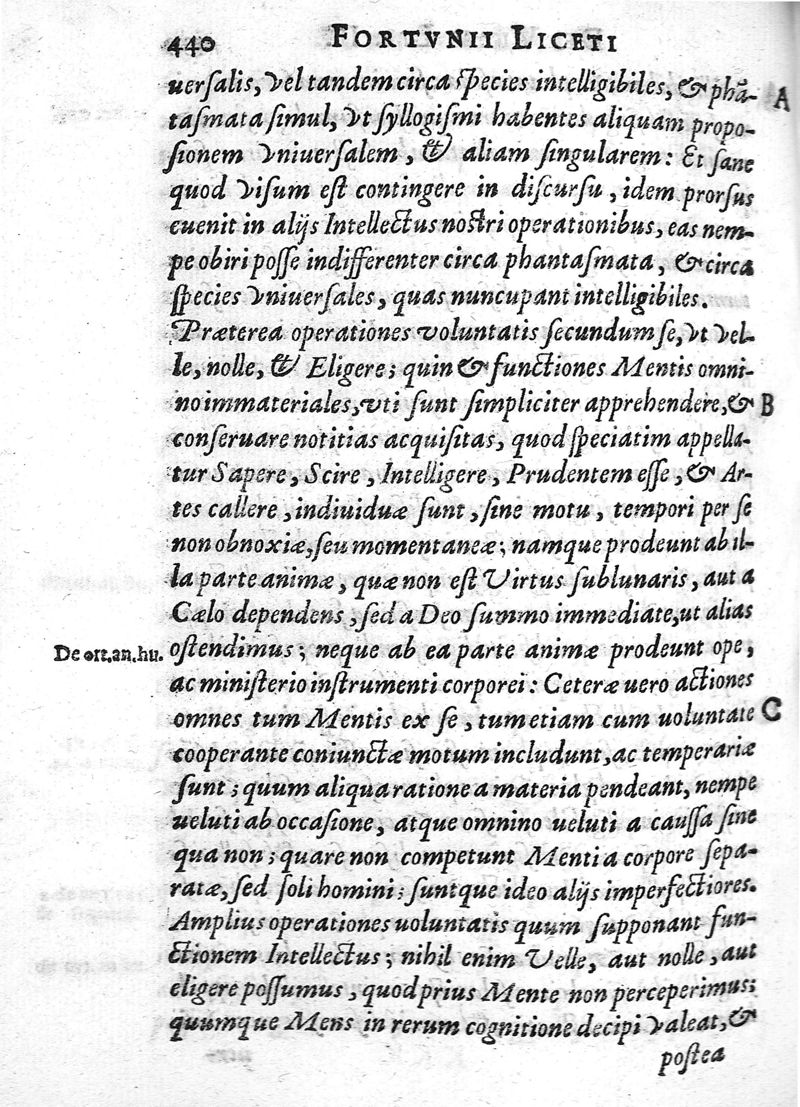 440 FORTVNII LICETI
uerſalis, vel tandem circa ſpecies intelligibiles, & phã- A
taſmata ſimul, vt ſyllogiſmi habentes aliquam propo-
ſionem vniuerſalem, & aliam ſingularem: Et ſane
quod viſum eſt contingere in diſcurſu, idem prorſus
euenit in alijs Intellectus noſtri operationibus, eas nem-
pe obiri poſſe indifferenter circa phantaſmata, & circa
ſpecies vniuerſales, quas nuncupant intelligibiles.
Præterea operationes voluntatis ſecundum ſe, vt vel-
le, nolle, & Eligere; quin & functiones Mentis omni-
no immateriales, vti ſunt ſimpliciter apprehendere, & B
conſeruare notitias acquiſitas, quod ſpeciatim appella-
tur Sapere, Scire, Intelligere, Prudentem eſſe, & Ar-
tes callere, indiuiduæ ſunt, ſine motu, tempori per ſe
non obnoxiæ, ſeu momentaneæ; namque prodeunt ab il-
la parte animæ, quæ non eſt Virtus ſublunaris, aut a
Cælo dependens, ſed a Deo ſummo immediate, ut alias
De ort. an. hu. oſtendimus; neque ab ea parte animæ prodeunt ope,
ac miniſterio inſtrumenti corporei: Ceteræ uero actiones
omnes tum Mentis ex ſe, tum etiam cum uoluntate C
cooperante coniunctæ motum includunt, ac temperariæ
ſunt; quum aliqua ratione a materia pendeant, nempe
ueluti ab occaſione, atque omnino ueluti a cauſſa ſine
qua non; quare non competunt Menti a corpore ſepa-
ratæ, ſed ſoli homini; ſuntque ideo alijs imperfectiores.
Amplius operationes uoluntatis quum ſupponant fun-
ctionem Intellectus; nihil enim Velle, aut nolle, aut
eligere poſſumus, quod prius Mente non perceperimus;
quumque Mens in rerum cognitione decipi valeat, &
poſtea